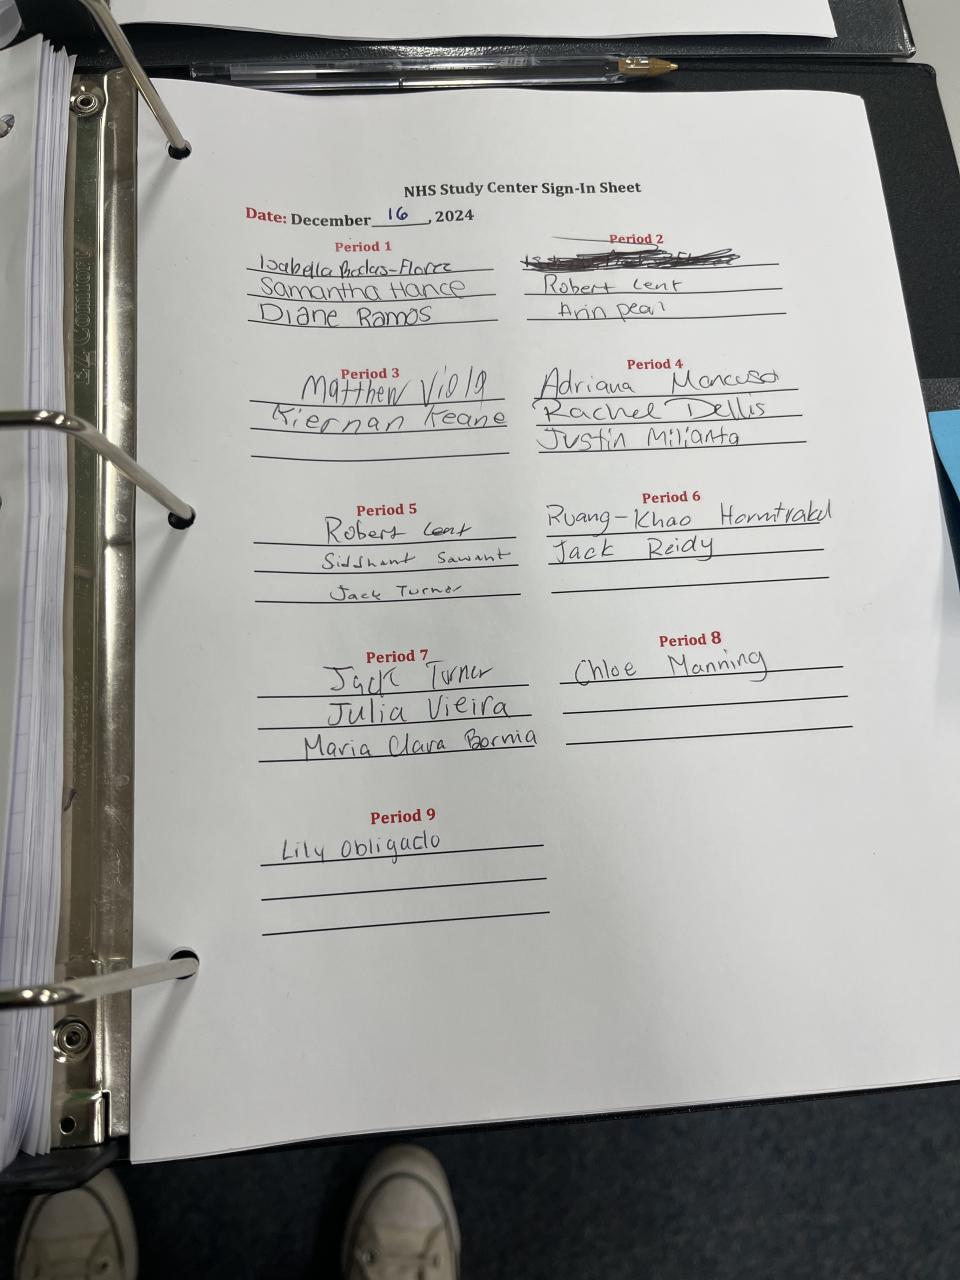 NHS Study Center Sign-In Sheet
Date: December 16, 2024
Period 1
Isabella
Samantha Hance
Diane Ramos
Period 2
Robert Lent
Arin pearl
Period 3
Matthew Viola
Kiernan Keane
Period 4
Adriana Mancuso
Rachel Dellis
Justin Milianta
Period 5
Robert Lent
Siddhant Sawant
Jack Turner
Period 6
Ruang-Khao
Jack Reidy
Period 7
Jack Turner
Julia Vieira
Maria Clara Bornia
Period 8
Chloe Manning
Period 9
Lily Obligado